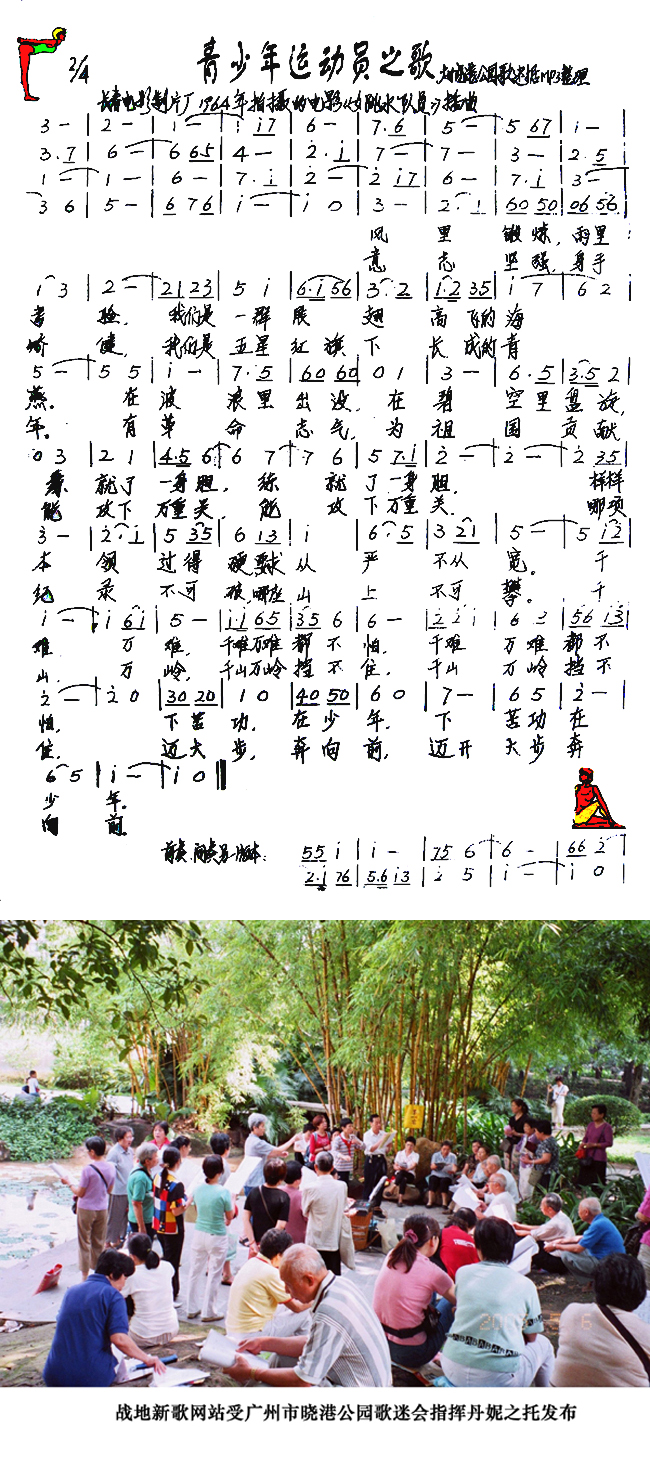 青少年运动员之歌
2/4
长春电影制片厂1964年拍摄的电影《女跳水队员》插曲
3 — | 2 — | i — | i i7 | 6 — | 7.6 | 5 — | 5 67 | i —
3.7 | 6 — | 6 65 | 4 — | 2.i | 7 — | 7 — | 3 — | 2.5
1 — | 1 — | 6 — | 7.i | 2 — | 2 i7 | 6 — | 7.i | 3 —
3 6 | 5 — | 6 76 | i — | i 0 | 3 — | 2.1 | 60 50 | 06 56
风 里 锻炼, 雨里
意 志 坚强, 身手
i 3 | 2 — | 21 23 | 5 i | 6.i 56 | 3.2 | 1.2 35 | i 7 | 6 2
我们是 一群 展 翅 高 飞的 海
矫 健, 我们是 五星 红旗 下 长 成的 青
5 — | 5 5 | i — | 7.5 | 60 60 | 0 1 | 3 — | 6.5 | 3.5 2
燕。 在 波 浪里 出没, 在 碧 空里 盘旋,
年。 有 革 命 志气, 为 祖 国 贡献
0 3 | 2 1 | 4.5 6 | 6 7 | 7 6 | 5 7.i | 2 — | 2 — | 2 35
练 就了 一身 胆, 练 就 了 一身 胆, 样样
能 攻下 万重 关, 能 攻 下 万重 关。 哪项
3 — | 2.i | 5 35 | 6 13 | i | 6.5 | 3 21 | 5 — | 5 i2
本 领 过得 硬, 要求 从 严 不从 宽。 千
纪 录 不可 破, 哪座 山 上 不可 攀。 千
i — | i 6i | 5 — | ii 65 | 35 6 | 6 — | 2 2 i | 6 3 | 56 i3
难 万 难, 千难万难 都 不 怕, 千难 万 难 都 不
山, 万 岭, 千山万岭 挡 不 住, 千山 万 岭 挡 不
2 — | 2 0 | 30 20 | 1 0 | 40 50 | 6 0 | 7 — | 6 5 | 2 —
怕, 下苦 功, 在少 年, 下 苦功 在
住, 迈大 步, 奔向 前, 迈开 大步 奔
6 5 | i — | i 0
少 年。
向 前。
55 i | i — | 75 6 | 6 — | 66 2
2.i 76 | 5.6 i3 | 2 5 | i — | i 0
战地新歌网站受广州市晓港公园歌迷会指挥丹妮之托发布